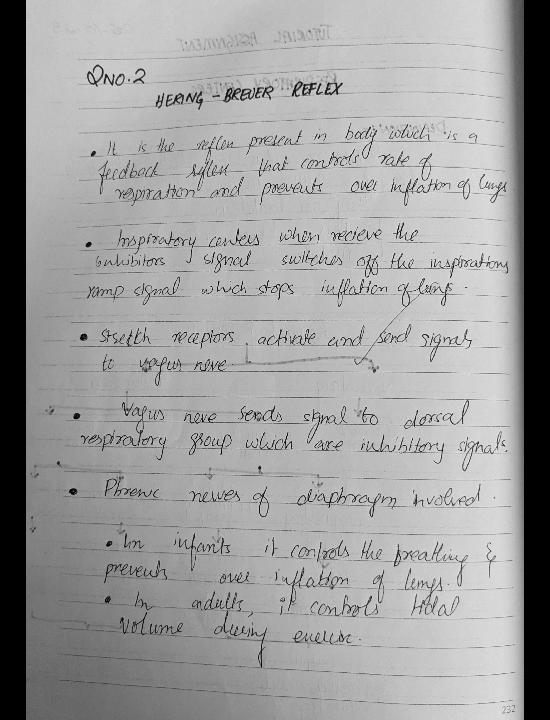 QNO.2
HERING - BREUER REFLEX
• It is the reflex present in body which is a
feedback reflex that controls rate of
respiration and prevents over inflation of lungs
• Inspiratory centers when recieve the
inhibitors signal switches off the inspirations
ramp signal which stops inflation of lungs.
• Stretth receptors activate and send signals
to vagus neve
• Vagus neve sends signal to dorsal
respiratory group which are inhibitory signals.
• Phrenic nerves of diaphragm involved.
• In infants it controls the breathing &
prevents over inflation of lungs.
• In adults, it controls tidal
volume during exercise.
232